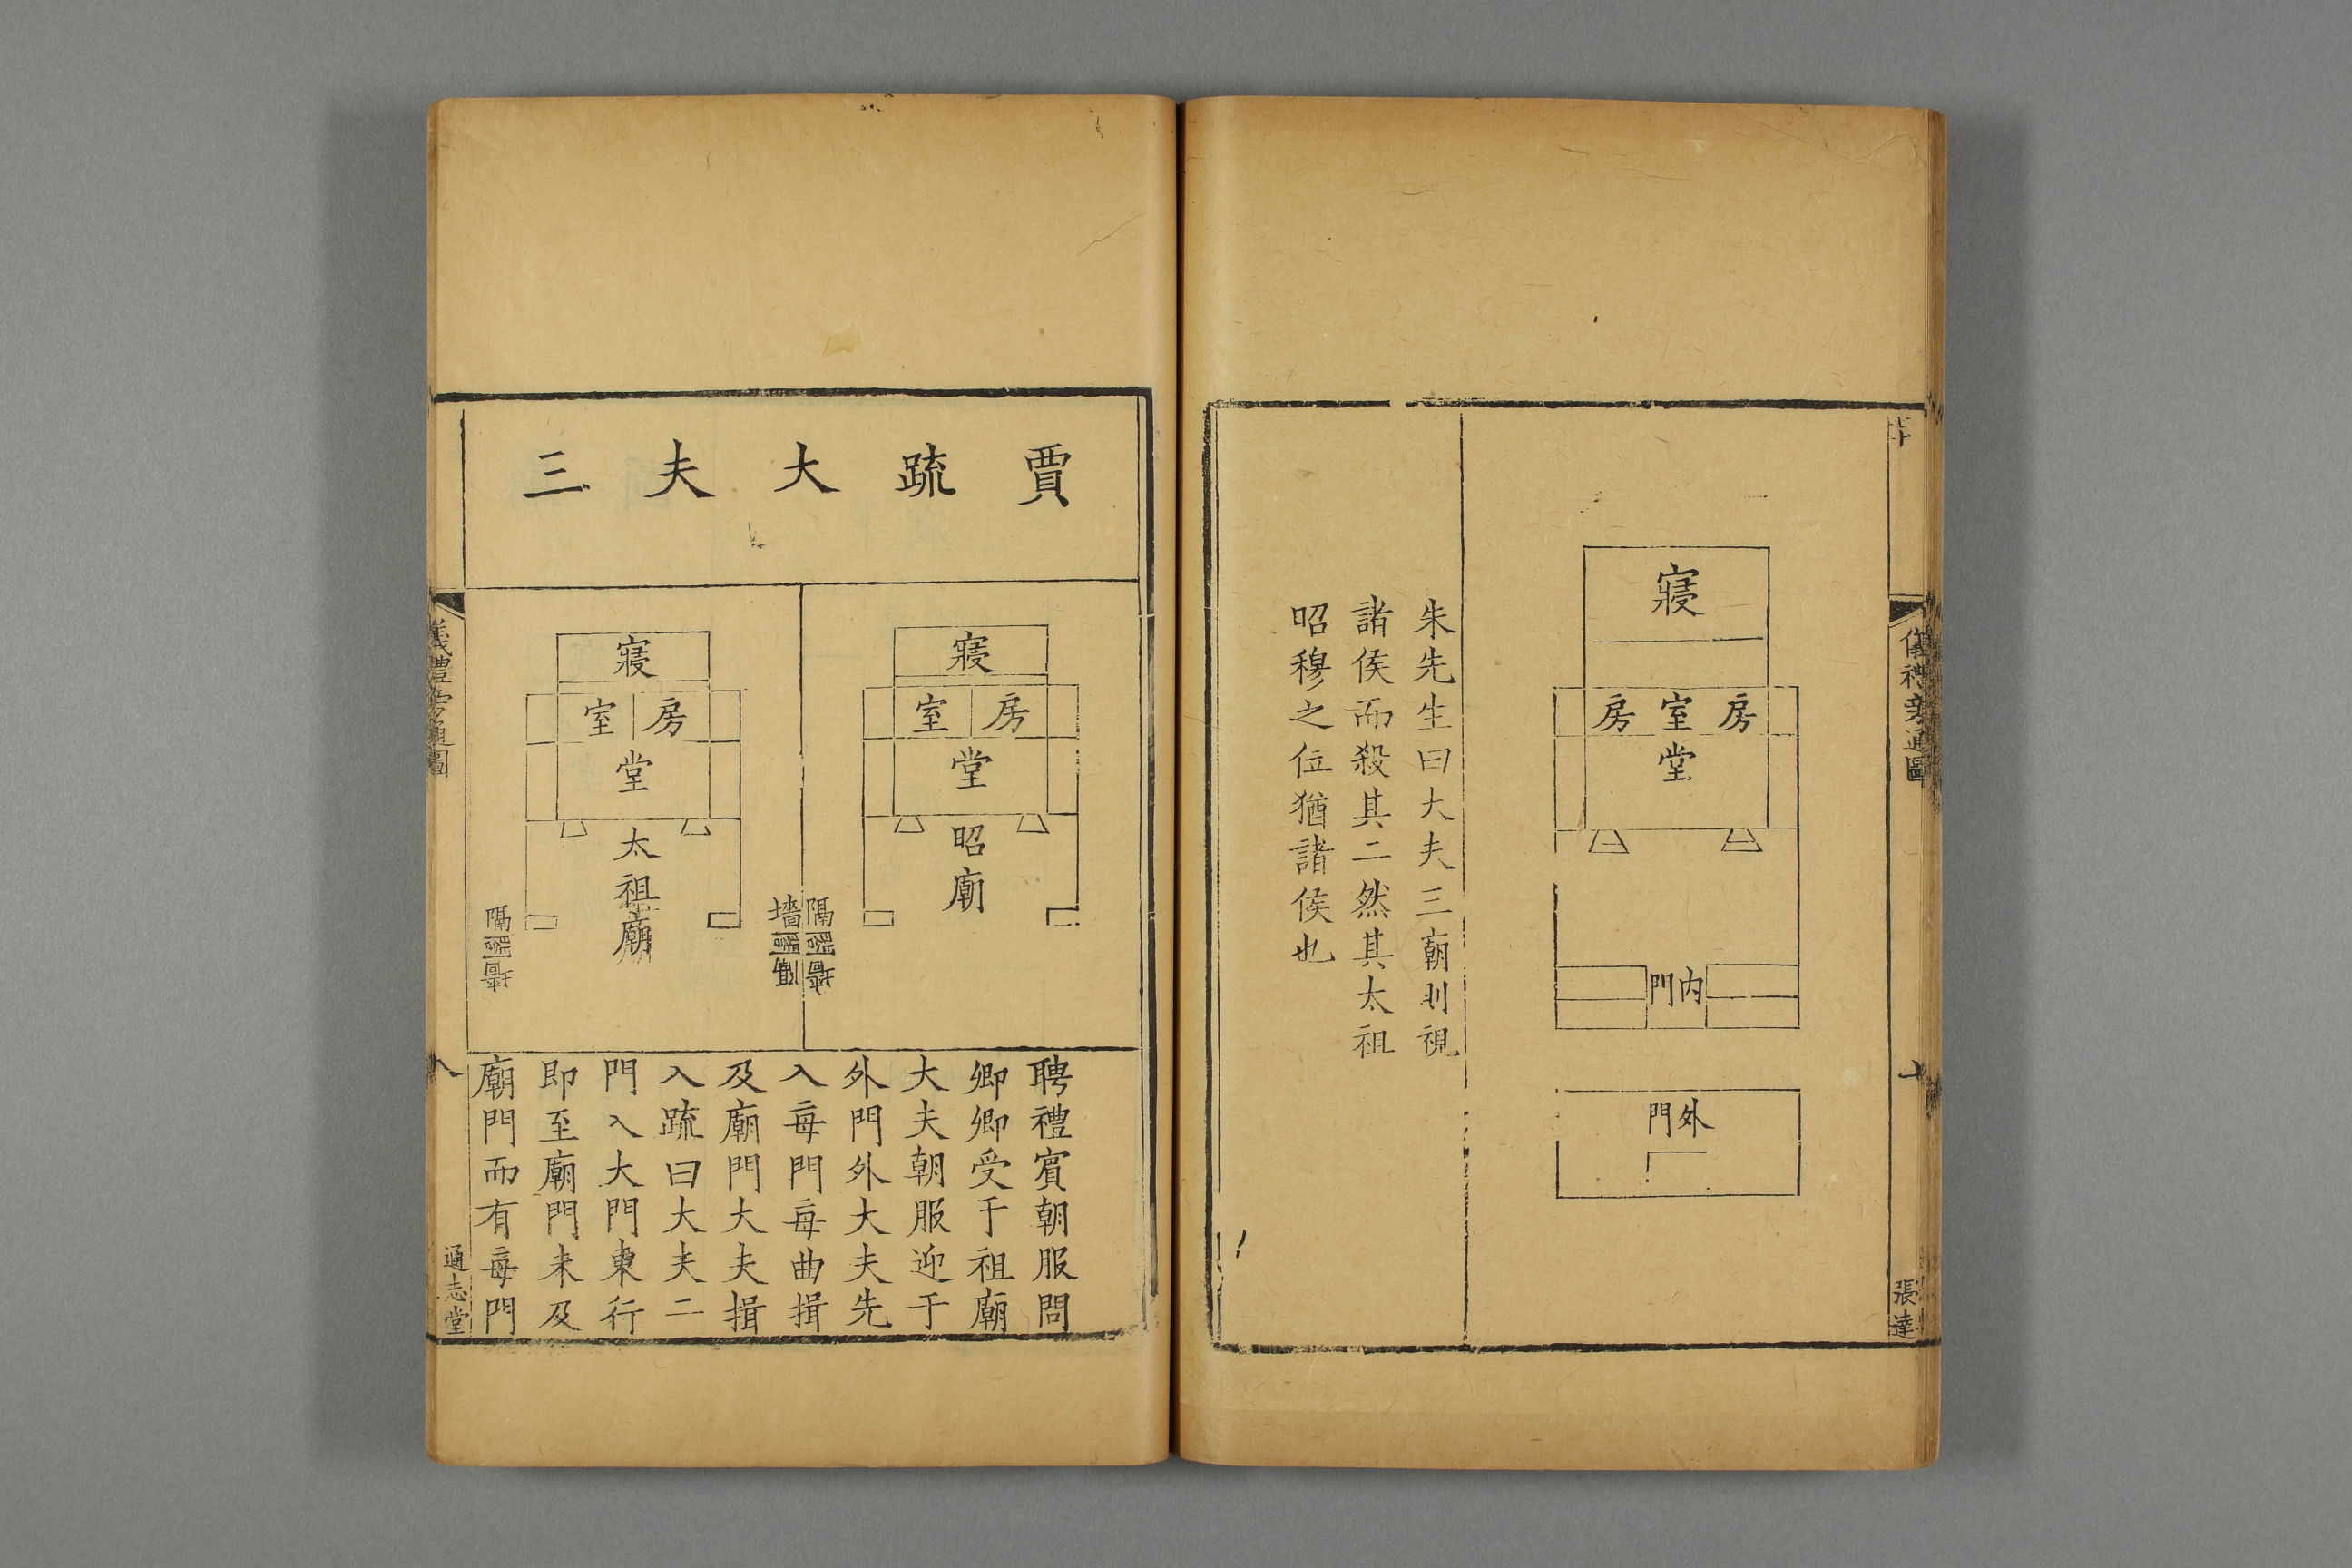 寢
房室房
堂
內門
外門
朱先生曰大夫三廟則視
諸侯而殺其二然其太祖
昭穆之位猶諸侯也
儀禮旁通圖
張達
賈疏大夫三
寢
房室
堂
昭廟
隔牆
閤門
牆
隔
閤門
牆
寢
房室
堂
太祖廟
隔
閤門
牆
聘禮賓朝服問
卿卿受于祖廟
大夫朝服迎于
外門外大夫先
入每門每曲揖
及廟門大夫揖
入疏曰大夫二
門入大門東行
即至廟門未及
廟門而有每門
儀禮旁通圖
八
通志堂